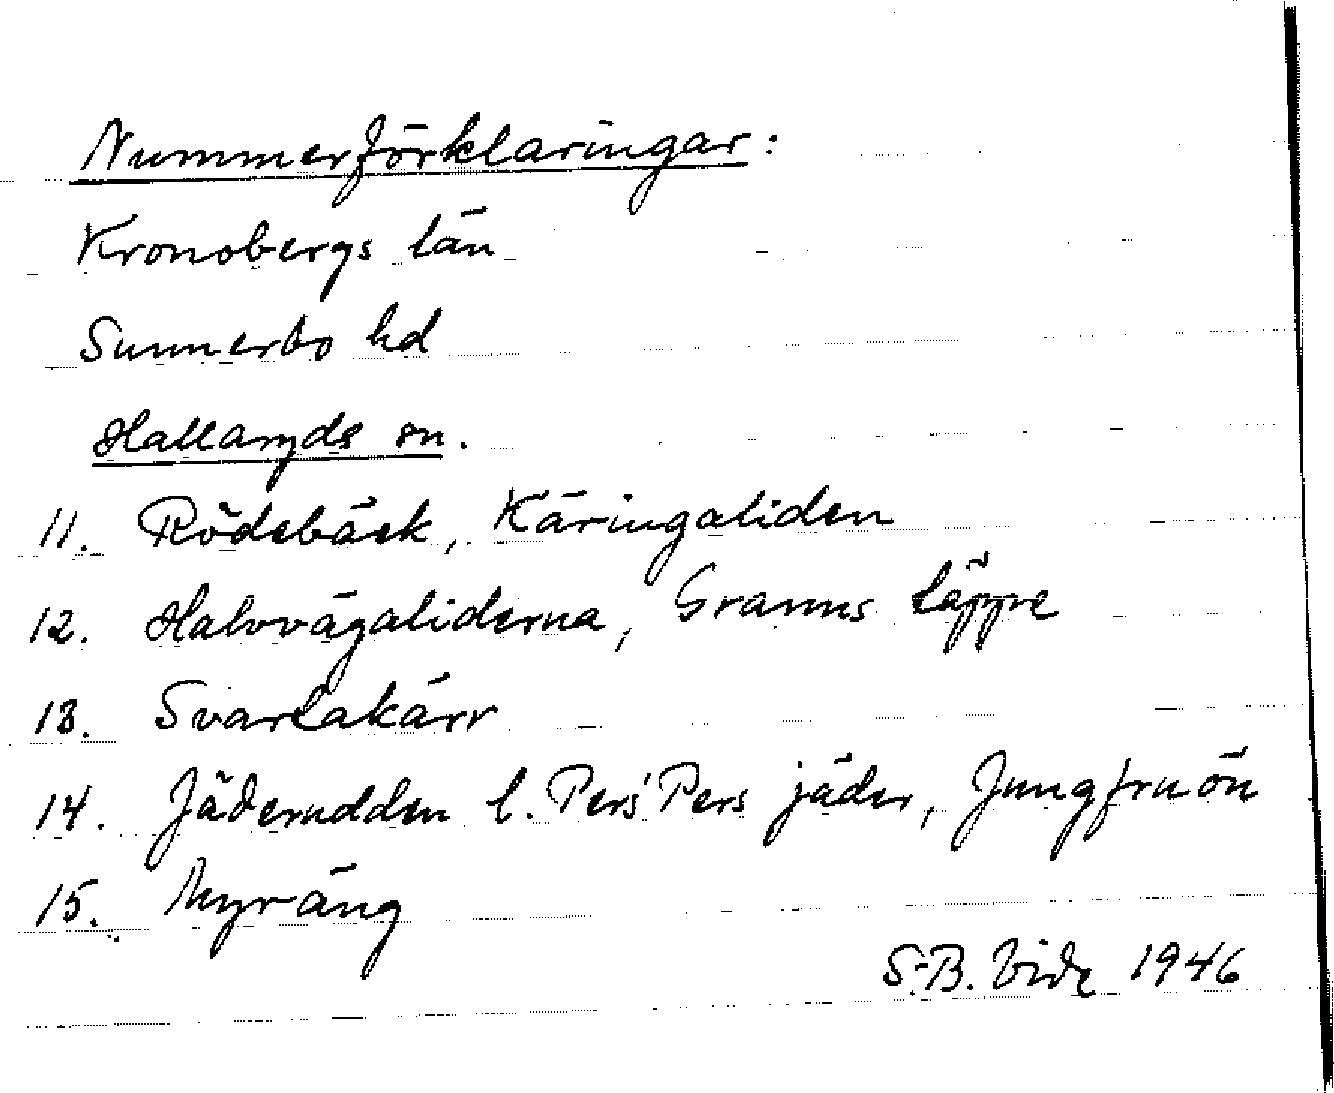 Nummerförklaringar:
Kronobergs län
Sunnerbo hd
Hallaryds sn.
11. Rödebäck, Käringaliden
12. Halvvägaliderna, Granns täppe
13. Svartakärr
14. Jäderudden l. Pers' Pers jäder, Jungfruön
15. Myräng
S-B. Vide 1946